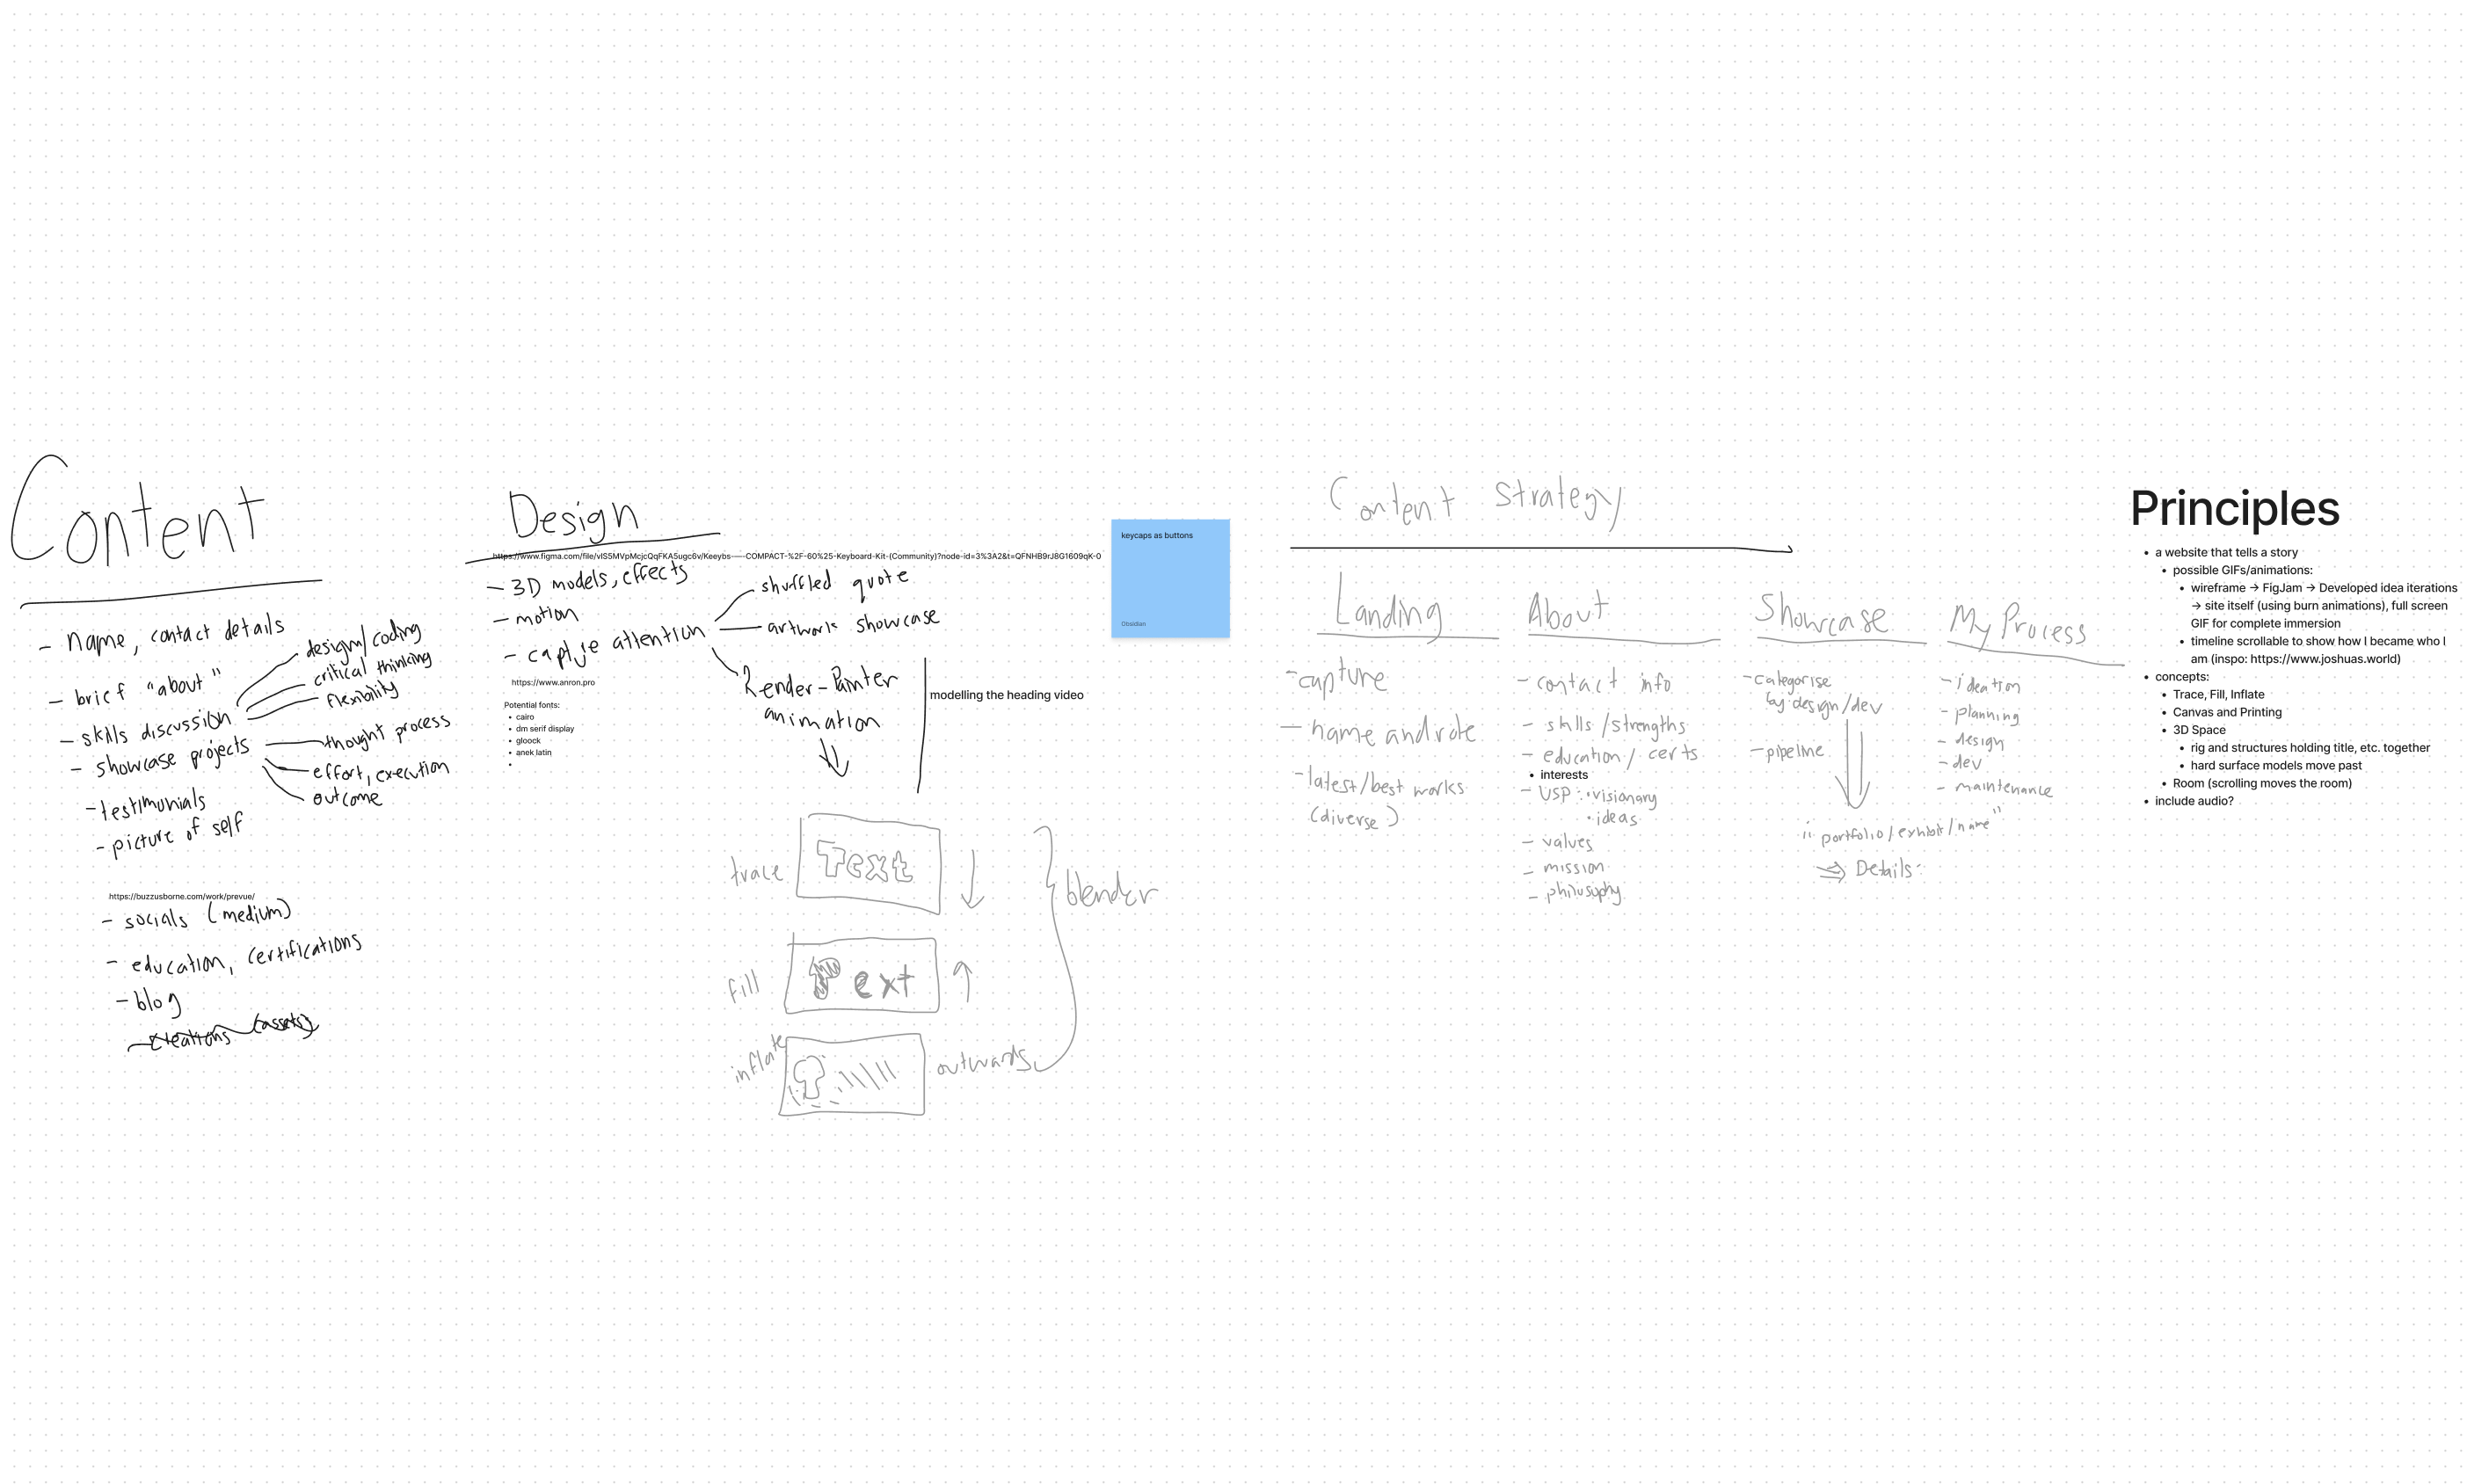 Content
- name, contact details
- brief "about"
- skills discussion
design/coding
critical thinking
flexibility
- showcase projects
thought process
effort, execution
outcome
- testimonials
- picture of self
https://buzzusborne.com/work/prevue/
- socials (medium)
- education, certifications
- blog
- creations (assets)
Design
https://www.figma.com/file/vlS5MVpMcjcQqFKA5ugc6v/Keeybs-----COMPACT-%2F-60%25-Keyboard-Kit-(Community)?node-id=3%3A2&t=QFNHB9rJ8G1609qK-0
- 3D models, effects
- motion
- capture attention
shuffled quote
artwork showcase
Render-Painter
animation
modelling the heading video
https://www.anron.pro
Potential fonts:
• cairo
• dm serif display
• gloock
• anek latin
•
trace
Text
fill
Text
inflate
outwards
blender
keycaps as buttons
Obsidian
Content Strategy
Landing
- capture
- name and role
- latest/best works
(diverse)
About
- contact info
- skills/strengths
- education/certs
• interests
- USP: • visionary
• ideas
- values
- mission
- philosophy
Showcase
- categorise
by design/dev
- pipeline
"portfolio/exhibit/name"
⇒ Details:
My Process
- ideation
- planning
- design
- dev
- maintenance
Principles
• a website that tells a story
• possible GIFs/animations:
• wireframe → FigJam → Developed idea iterations
→ site itself (using burn animations), full screen
GIF for complete immersion
• timeline scrollable to show how I became who I
am (inspo: https://www.joshuas.world)
• concepts:
• Trace, Fill, Inflate
• Canvas and Printing
• 3D Space
• rig and structures holding title, etc. together
• hard surface models move past
• Room (scrolling moves the room)
• include audio?